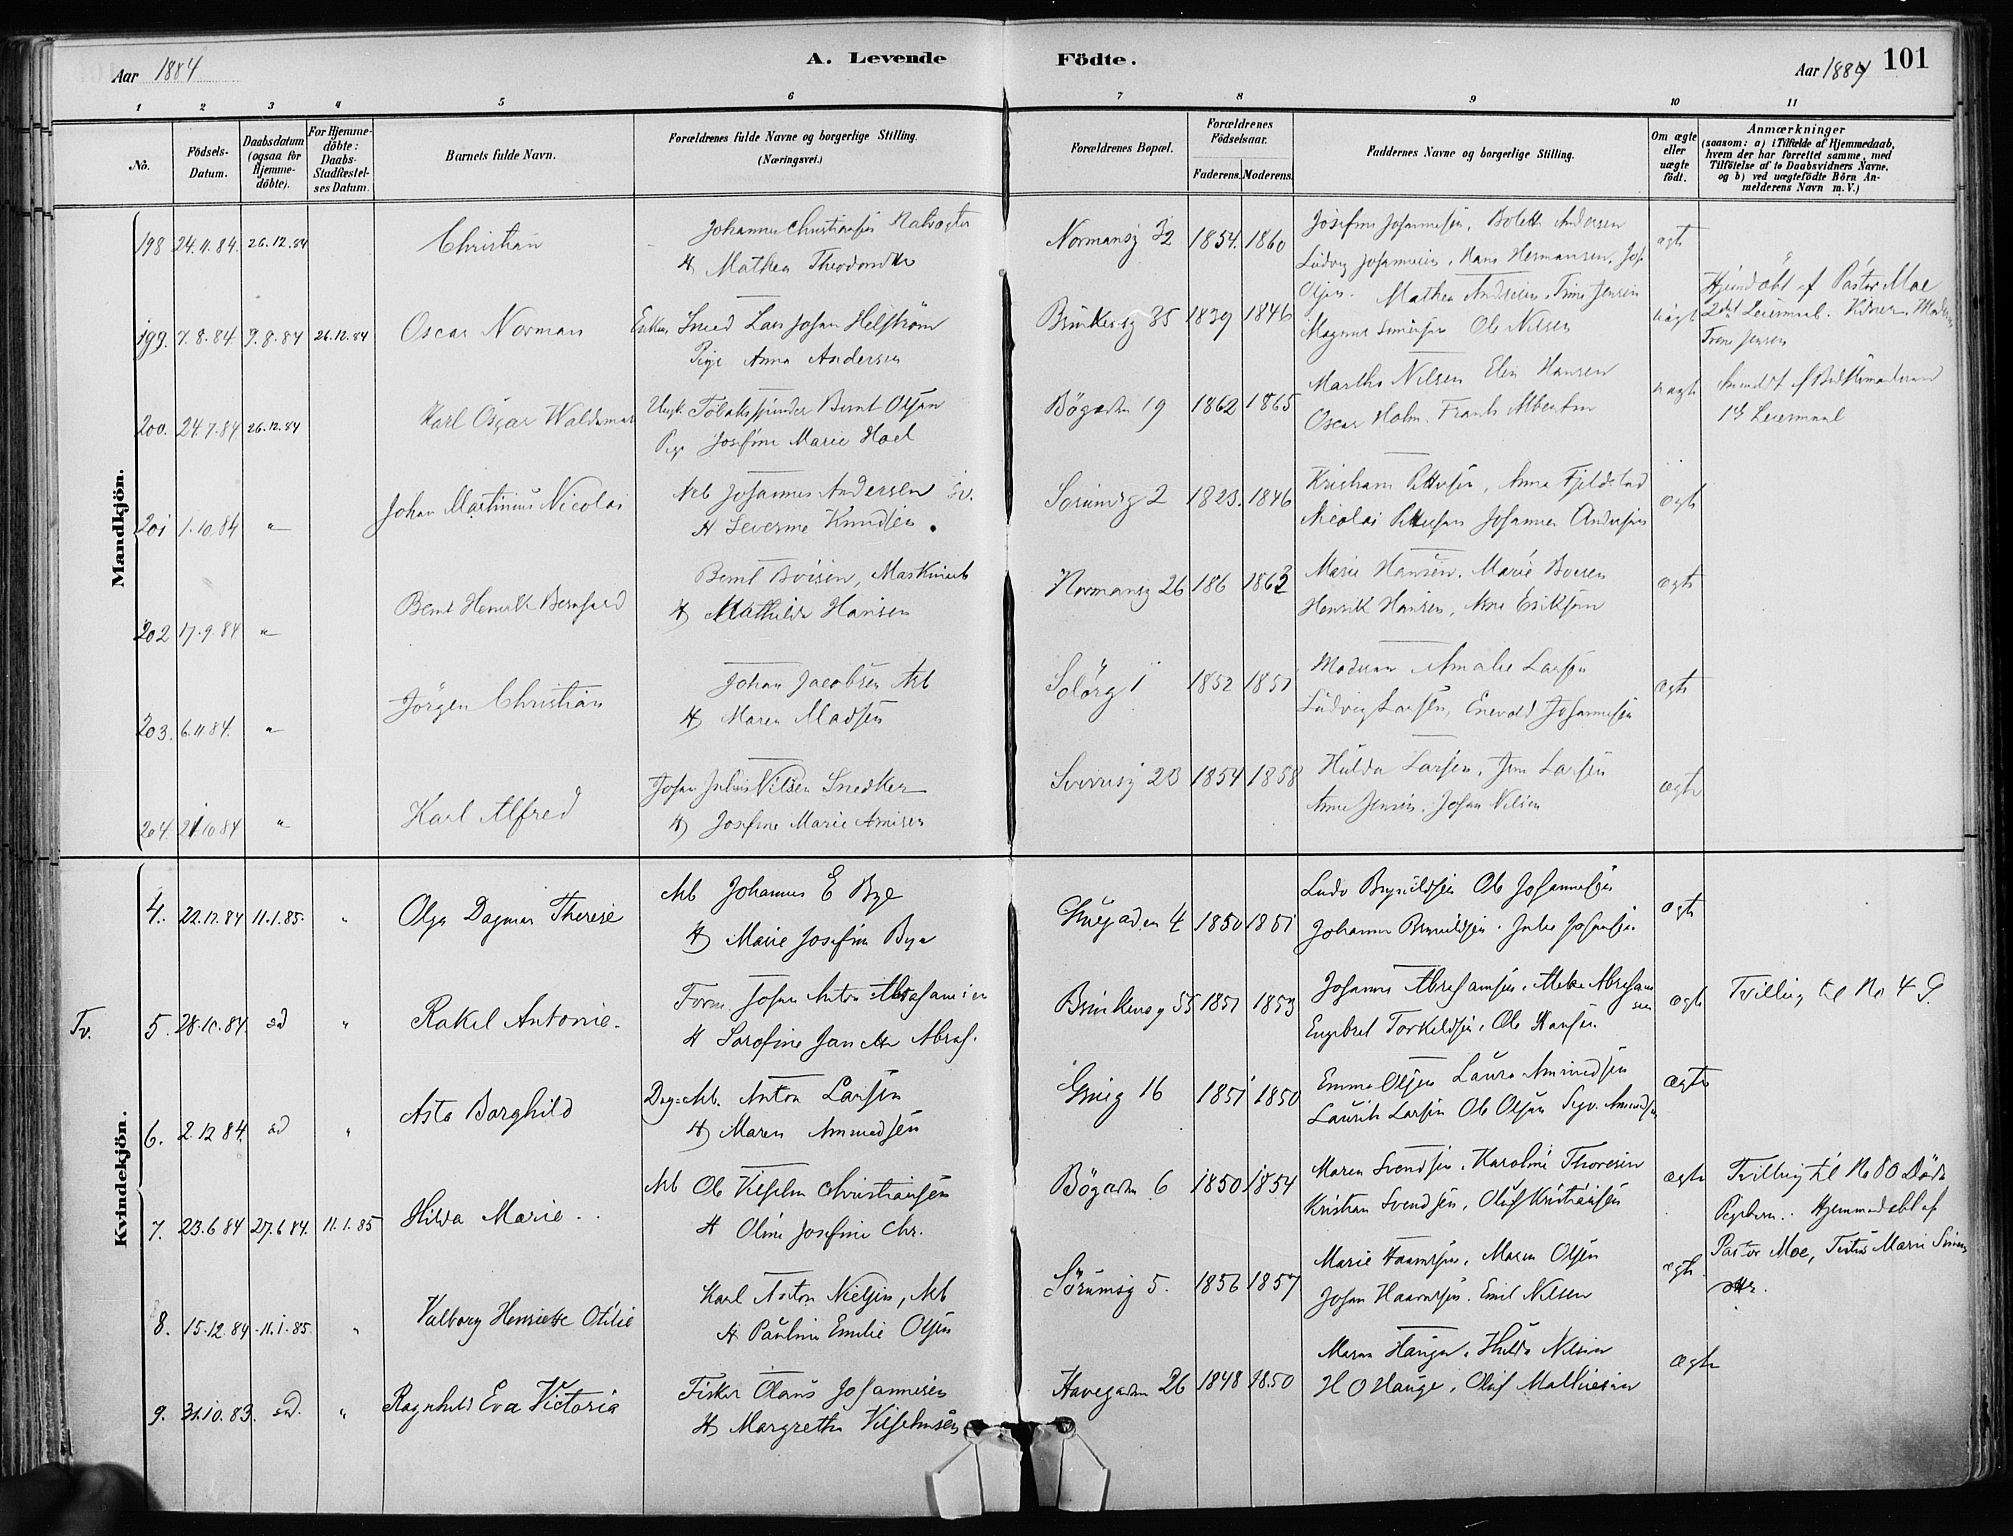 Aar 1884
A. Levende Födte.
Aar 1884 101
1 2 3 4 5 6 7 8 9 10 11
No.
Födsels-Datum.
Daabsdatum (ogsaa for Hjemme-döbte).
For Hjemme-döbte: Daabs-Stadfæstel-ses Datum.
Barnets fulde Navn.
Forældrenes fulde Navne og borgerlige Stilling. (Næringsvei.)
Forældrenes Bopæl.
Forældrenes Födselsaar.
Faderens. Moderens.
Faddernes Navne og borgerlige Stilling.
Om ægte eller uægte født.
Anmærkninger
(saasom: a) i Tilfælde af Hjemmedaab,
hvem der har forrettet samme, med
Tilföielse af to Daabsvidners Navne.
og b) ved uægtefödte Börn An-
melderens Navn m.V.)
Mandkjön.
198 24.11.84. 26.12.84 Christian Johannes Christiansen
H Mathea
Normansg 32 1854. 1860 Josefine Johannesen, Andersen
Ludvig Johannesen, Hans Hermansen, Joh.
Olsen. ægte
199. 7.8.84 9.8.84 26.12.84 Oscar Norman Enkem Smed Lars Johan Helström
Pige Anna Andersen
35 1839 1846 Mathea Andersen, Trine Jensen
Magnus Ole Nilsen uægte
Hjemdöbt af Pastor Moe
2det Leiermaal.
Trine Jensen
200. 24.7.84 26.12.84 Karl Oscar Waldemar Ungk. Bernt Olsen
Pige Josefine Marie Hoel
Bögaden 19 1862 1865 Martha Nilsen Elin Hansen
Oscar Holm. Frants uægte
Anmeldt af
1ste Leiermaal
201 1.10.84 " Johan Martinius Nicolai Arb Johannes Andersen
H Severine Knudsen.
Sorumsg 2 1823. 1846 Kristiane Pettersen, Anna Fjeldstad
Nicolai Pettersen Johannes Andersen ægte
202 17.9.84 " Bernt Henrik Bernhard Bernt Boisen, Maskinarb
H Mathilde Hansen
Normansg 26 186 1862 Marie Hansen. Marie
Henrik Hansen, Eriksen ægte
203. 6.11.84. " Jörgen Christian Johan Jacobsen Arb
H Maren Madsen
Solörg 1 1852 1851 Moderen Amalie Larsen
Ludvig Larsen, Enevold Johannesen ægte
204. 21.10.84 " Karl Alfred Johan Julius Nilsen Snedker
H Josefine Marie
23 1854 1858 Hulda Larsen, Larsen
Jensen. Johan Nilsen ægte
Kvindekjön.
4. 22.11.84 11.1.85. " Olga Dagmar Therese Arb Johannes E Bye
H Marie Josefine Bye
4 1850 1851 Ludv Brynildsen Ole Johannesen
Johannes Brynildsen. Johansen ægte
Tv. 5. 28.10.84. sd " Rakel Antonie. Form Johan Anton Abrahamsen
H Sorofine Abrah.
55 1851 1853 Johannes Abrahamsen. Abrahamsen
Engebret Torkildsen, Ole Hansen ægte
Tvilling til No 4 ♀.
6. 2.12.84. sd " Asta Borghild Dag=Arb. Anton Larsen
H Maren Ammundsen
16 1851 1850 Emma Olsen Laura Ammundsen
Laurits Larsen Ole Olsen ægte
7. 23.6.84 27.6.84. 11.1.85 Hilda Marie.. Arb Ole Vilhelm Christiansen
H Oline Josefine Chr.
Bögaden 6 1850 1854 Maren Svendsen. Karoline Thoresen
Kristian Svendsen, Oluf Kristiansen ægte
Tvilling til No 80 Döde
Pigebørn. Hjemmedøbt af
Pastor Moe, Marie
8. 15.12.84 11.1.85. " Valborg Henriette Otilie Karl Anton Nielsen, Arb
H Pauline Emilie Olsen
Sörumsg 5. 1856 1857 Marie Maren Olsen
Johan Emil Nilsen ægte
9. 31.10.83. sd. " Ragnhild Eva Victoria Fisker Olaus Johannesen
H Margrethe Vilhelmsen
Havegaden 26 1848 1850 Maren Hauge, Hulda Nilsen
H O Hauge, Oluf Mathiesen ægte